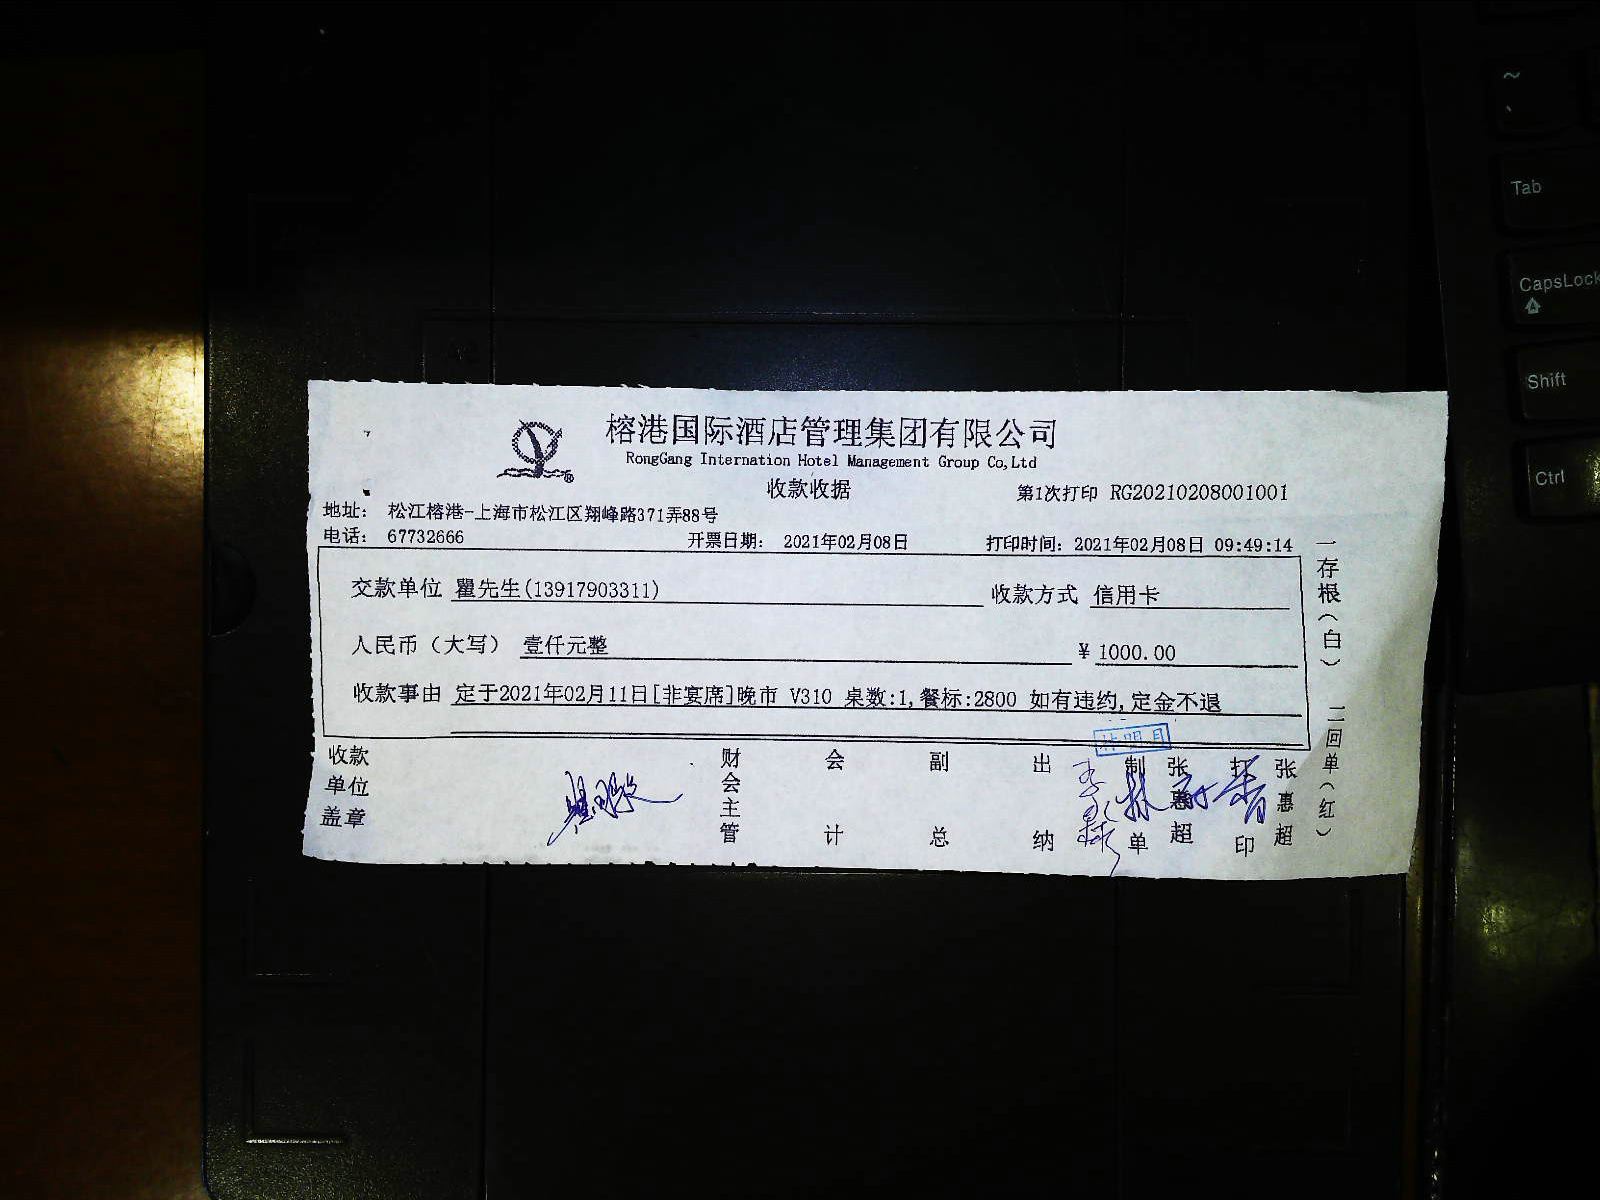 榕港国际酒店管理集团有限公司
RongGang Internation Hotel Management Group Co,Ltd
收款收据
第1次打印 RG20210208001001
地址： 松江榕港-上海市松江区翔峰路371弄88号
电话： 67732666
开票日期： 2021年02月08日
打印时间：2021年02月08日 09:49:14
交款单位 瞿先生(13917903311)
收款方式 信用卡
人民币（大写） 壹仟元整
¥ 1000.00
收款事由 定于2021年02月11日[非宴席]晚市 V310 桌数:1,餐标:2800 如有违约,定金不退
收款单位盖章
财会主管
会计
副总
出纳
制单
张惠超
打印
张惠超
一存根（白）
二回单（红）
~
`
Tab
CapsLock
Shift
Ctrl